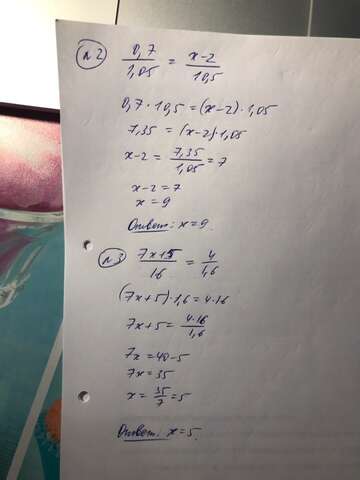 №2 0,7/1,05 = x-2/10,5
0,7·10,5=(x-2)·1,05
7,35=(x-2)·1,05
x-2=7,35/1,05=7
x-2=7
x=9
Ответ: x=9.
№3 7x+5/16 = 4/1,6
(7x+5)·1,6=4·16
7x+5=4·16/1,6
7x=40-5
7x=35
x=35/7=5
Ответ: x=5.